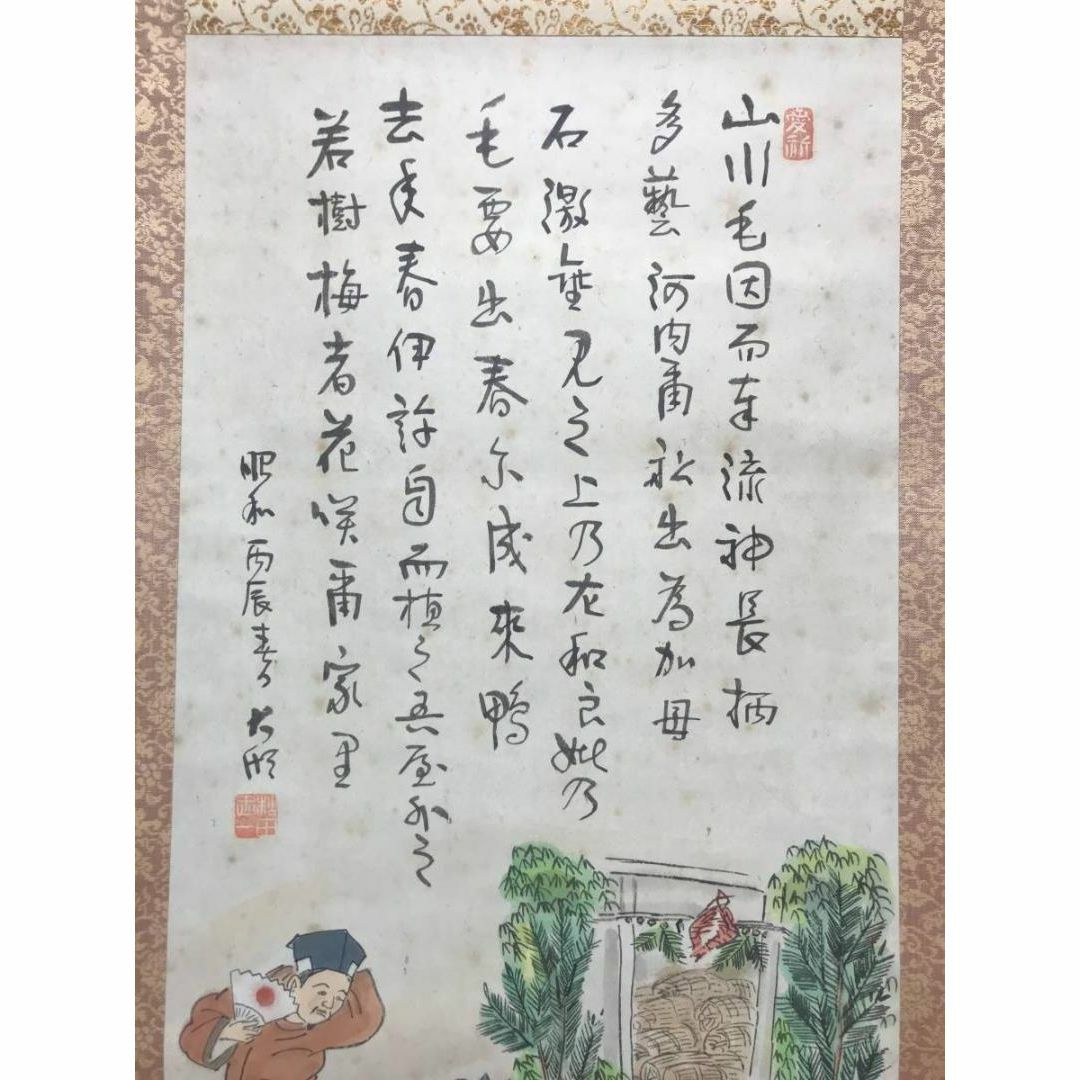 山川毛因而奉流神長柄
多藝河内爾船出為加母
石激垂見之上乃左和良妣乃
毛要出春尓成來鴨
去年春伊許自而植之吾屋外之
若樹梅者花咲爾家里
昭和丙辰春日